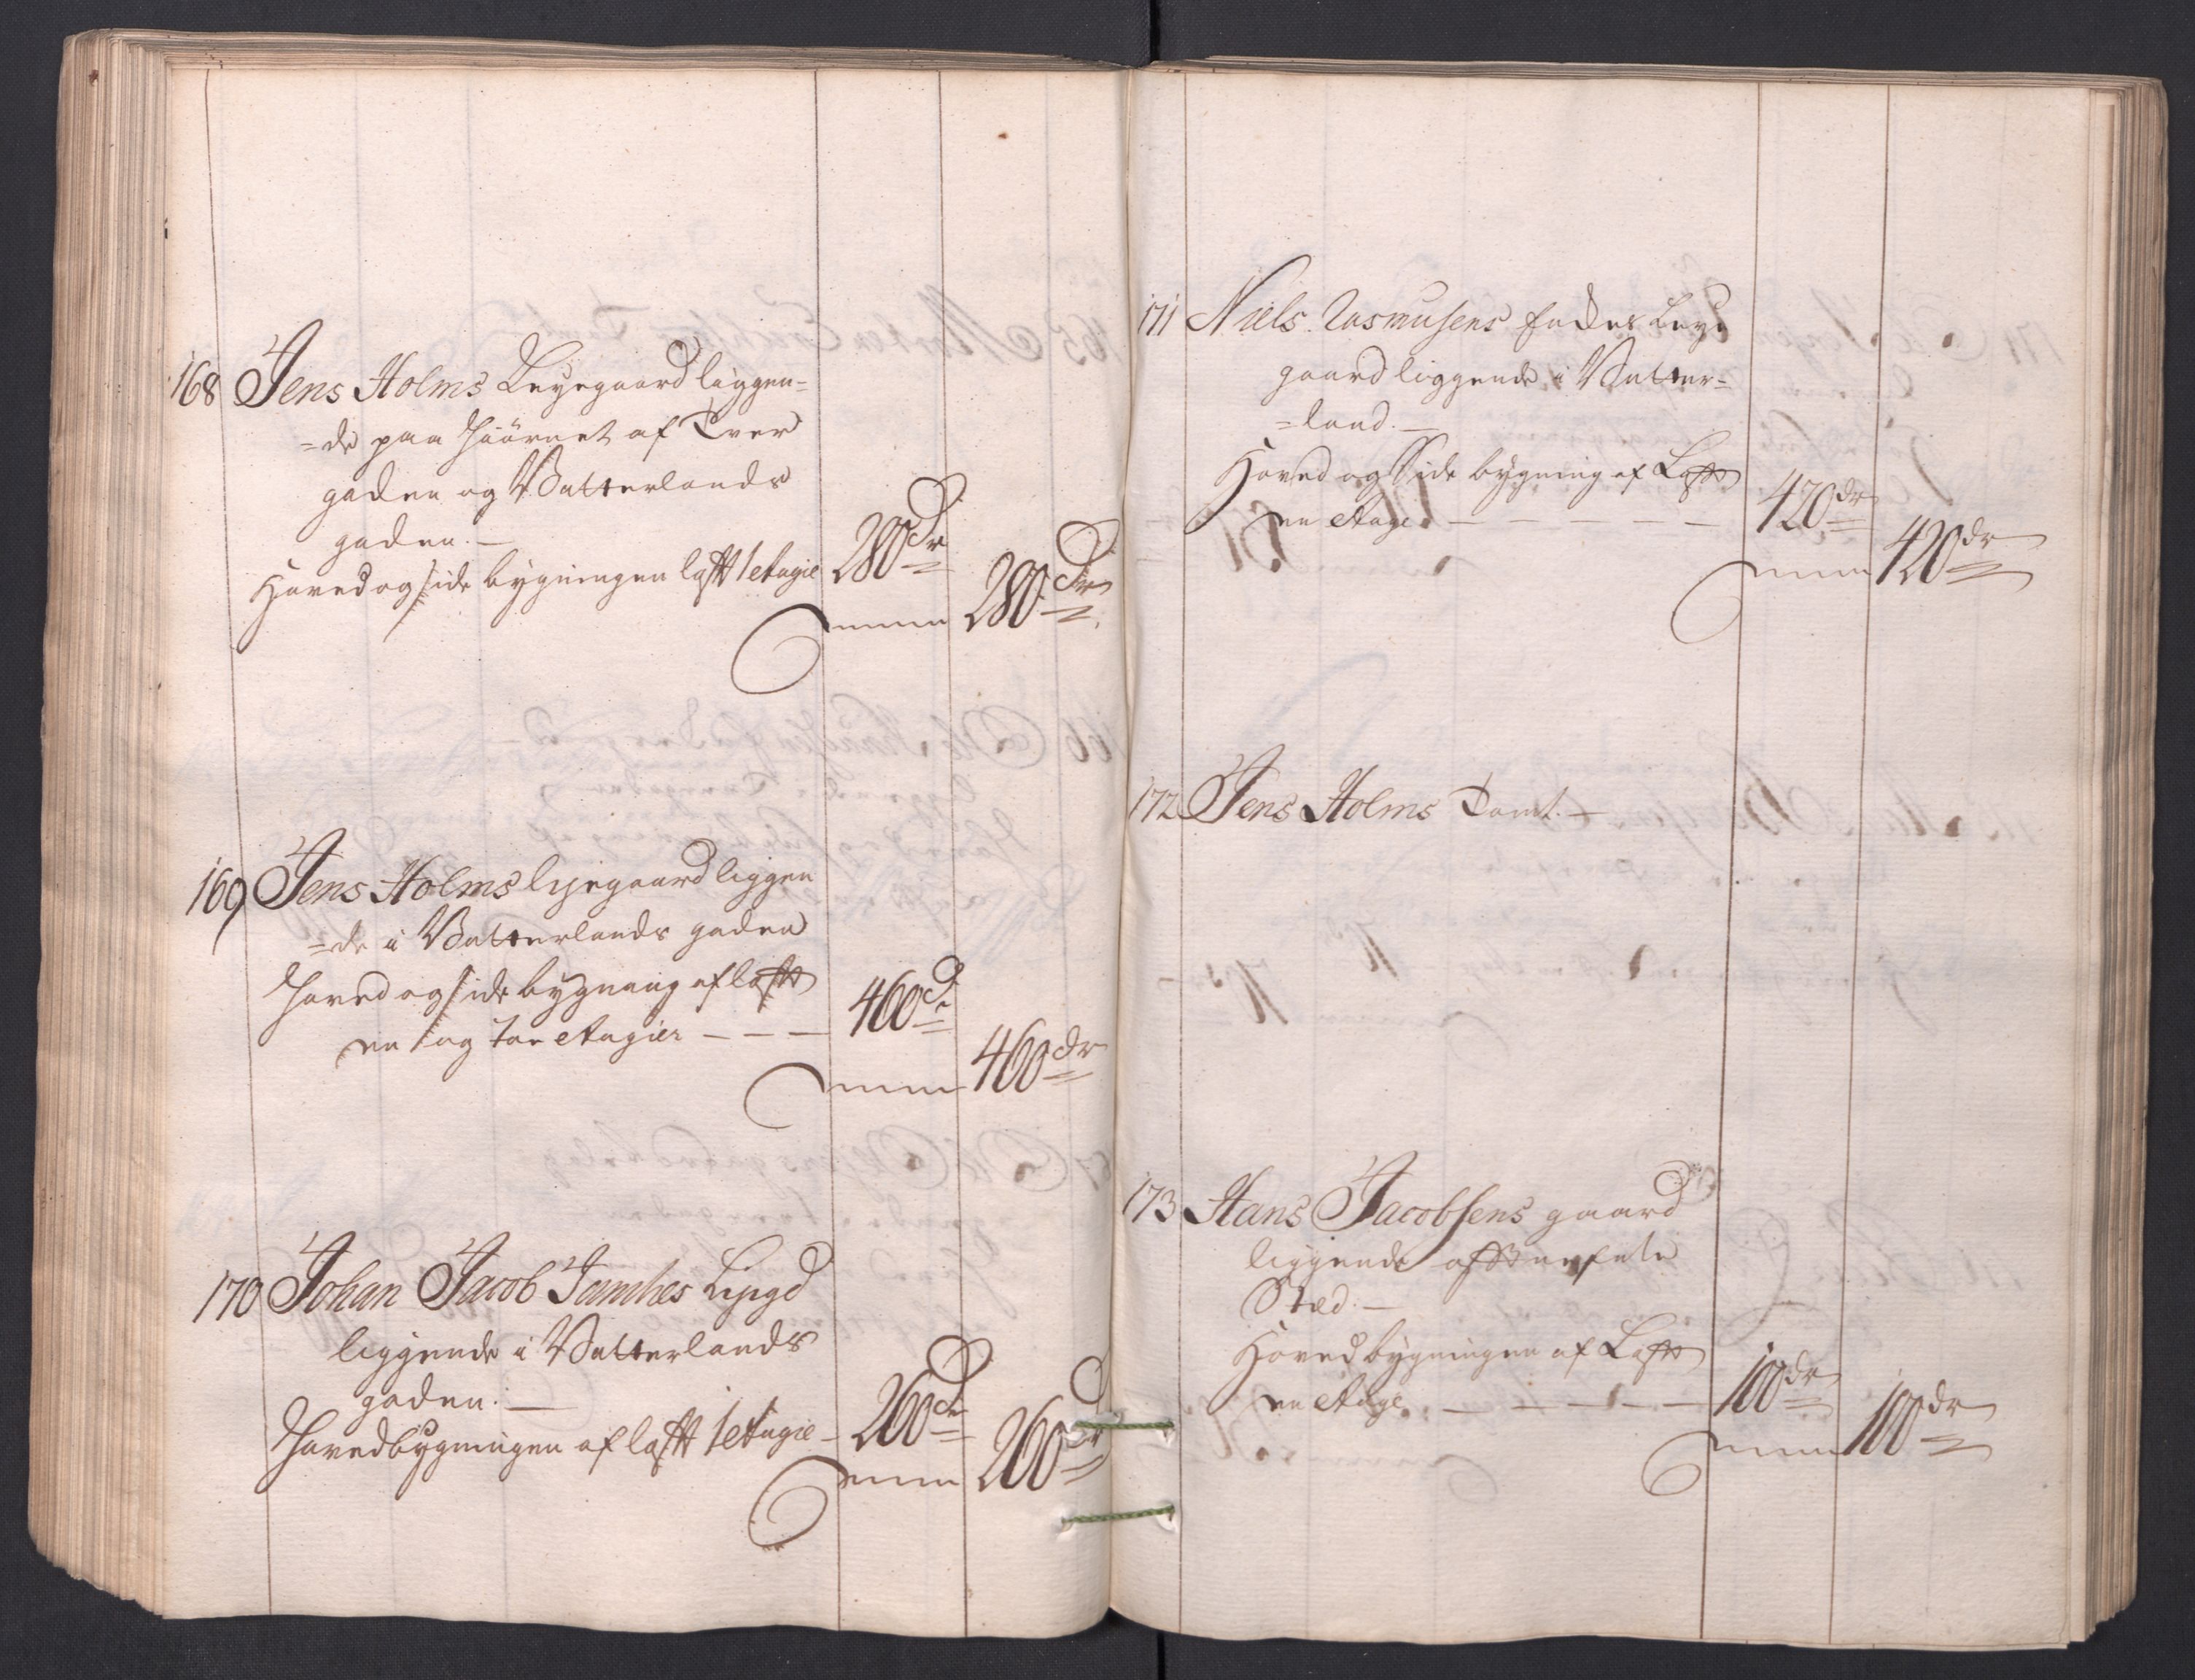 168 Jens Holms Leyegaard liggen=
=de paa Hiörnet af Tver
gaden og Vatterlands
gaden.
Hoved og side bygningen loftt 1 etagie 280 dr
Summa 280 dr
169 Jens Holms leyegaard liggen
=de i Vatterlands gaden
Hoved og side bygning af loftt
en og toe etagier - - - 460 dr
Summa 460 dr
170 Johan Jacob Leygd
liggende i Vatterlands
gaden.
Hovedbygningen af loftt 1 etagie - 260 dr
Summa 260 dr
171 Niels Rasmusens Enckes Leye
gaard liggende i Vatter=
=land.
Hoved og Side bygning af Loftt
en etage. - - - - - 420 dr
Summa 420 dr
172 Jens Holms Tomt.
173 Hans Jacobsens gaard
liggende
Sted.
Hovedbygningen af Loftt
en etage. - - - - - 100 dr
Summa 100 dr